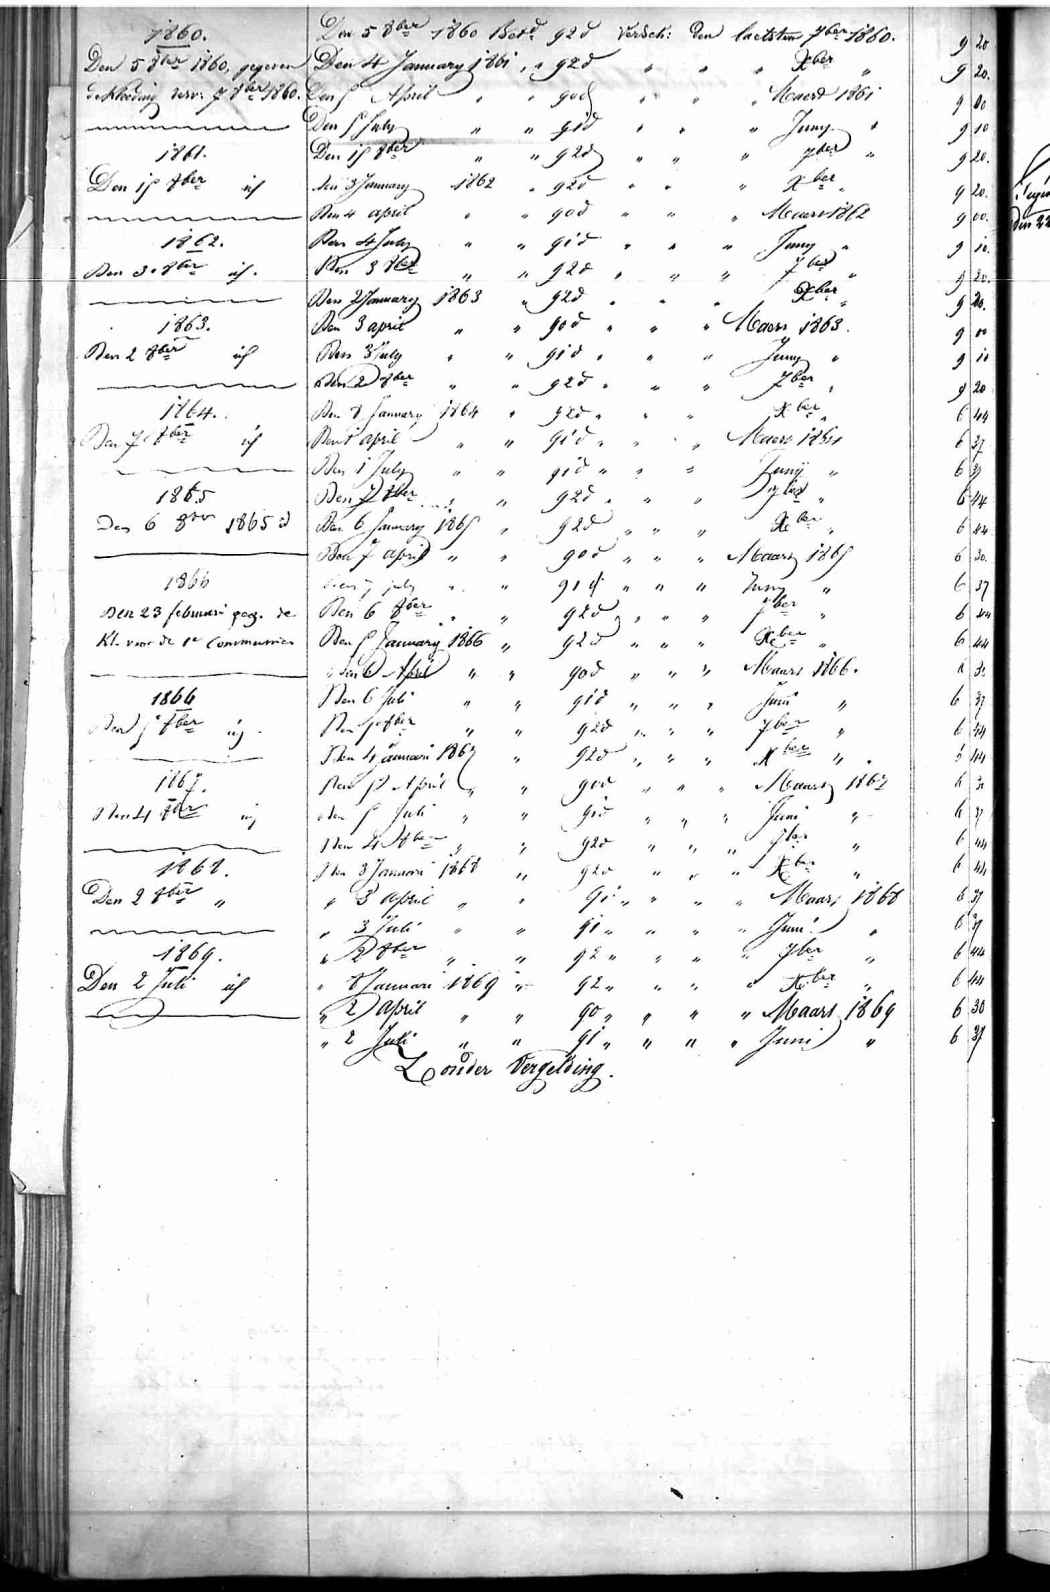 1860.
Den 5 8ber 1860, gegeven
de kleeding verv: 7 8ber 1860.
1861.
Den 1s 8ber id
1862.
Den 3 8ber id.
1863.
Den 2 8ber id
1864.
Den 7 8ber id
1865
Den 6 8ber 1865 id
1866
Den 23 februari geg. de
Kl. voor de 1e Communien
1866
Den 5 8ber id.
1867.
Den 4 8ber id
1868.
Den 2 8ber "
1869.
Den 2 Juli id
Den 5 8ber 1860 Betd 92d Versch: den laetsten 7ber 1860. 9 20
Den 4 January 1861 " " 92d " " " Xber " 9 20.
Den 5 April " " 90d " " " Maert 1861 9 00
Den 5 July " " 91d " " " Juny " 9 10
Den 1s 8ber " " 92d " " " 7ber " 9 20.
den 3 January 1862 " 92d " " " Xber " 9 20.
Den 4 april " " 90d " " " Maert 1862 9 00.
Den 4 July " " 91d " " " Juny " 9 10.
Den 3 8ber " " 92d " " " 7ber " 9 20.
Den 2 January 1863 " 92d " " " Xber " 9 20.
Den 3 april " " 90d " " " Maers 1863. 9 00
Den 3 July " " 91d " " " Juny " 9 10
Den 2 8ber " " 92d " " " 7ber " 9 20
Den 8 January 1864 " 92d " " " Xber " 6 44
Den 1 april " " 91d " " " Maers 1864 6 37
Den 1 July " " 91d " " " Juny " 6 37
Den 7 8ber " " 92d " " " 7ber " 6 44
Den 6 January 1865 " 92d " " " Xber " 6 44
Den 7 april " " 90d " " " Maars 1865 6 30.
Den 7 july " " 91d " " " Juny " 6 37
Den 6 8ber " " 92d " " " 7ber " 6 44
Den 5 January 1866 " 92d " " " Xber " 6 44
Den 6 April " " 90d " " " Maars 1866. 6 30
Den 6 Juli " " 91d " " " Juni " 6 37
Den 5 8ber " " 92d " " " 7ber " 6 44
Den 4 januari 1867 " 92d " " " Xber " 6 44
Den 5 April " " 90d " " " Maars 1867 6 30
den 5 Juli " " 91d " " " Juni " 6 37
Den 4 8ber " " 92d " " " 7ber " 6 44
Den 3 Januari 1868 " 92d " " " Xber " 6 44
" 3 april " " 91 " " " " Maars 1868 6 37
" 3 Juli " " 91 " " " " Juni " 6 37
" 2 8ber " " 92 " " " " 7ber " 6 44
" 8 Januari 1869 " 92 " " " " Xber " 6 44
" 2 april " " 90 " " " " Maars 1869 6 30
" 2 Juli " " 91 " " " " Juni " 6 37
Zonder Vergelding.
den 22